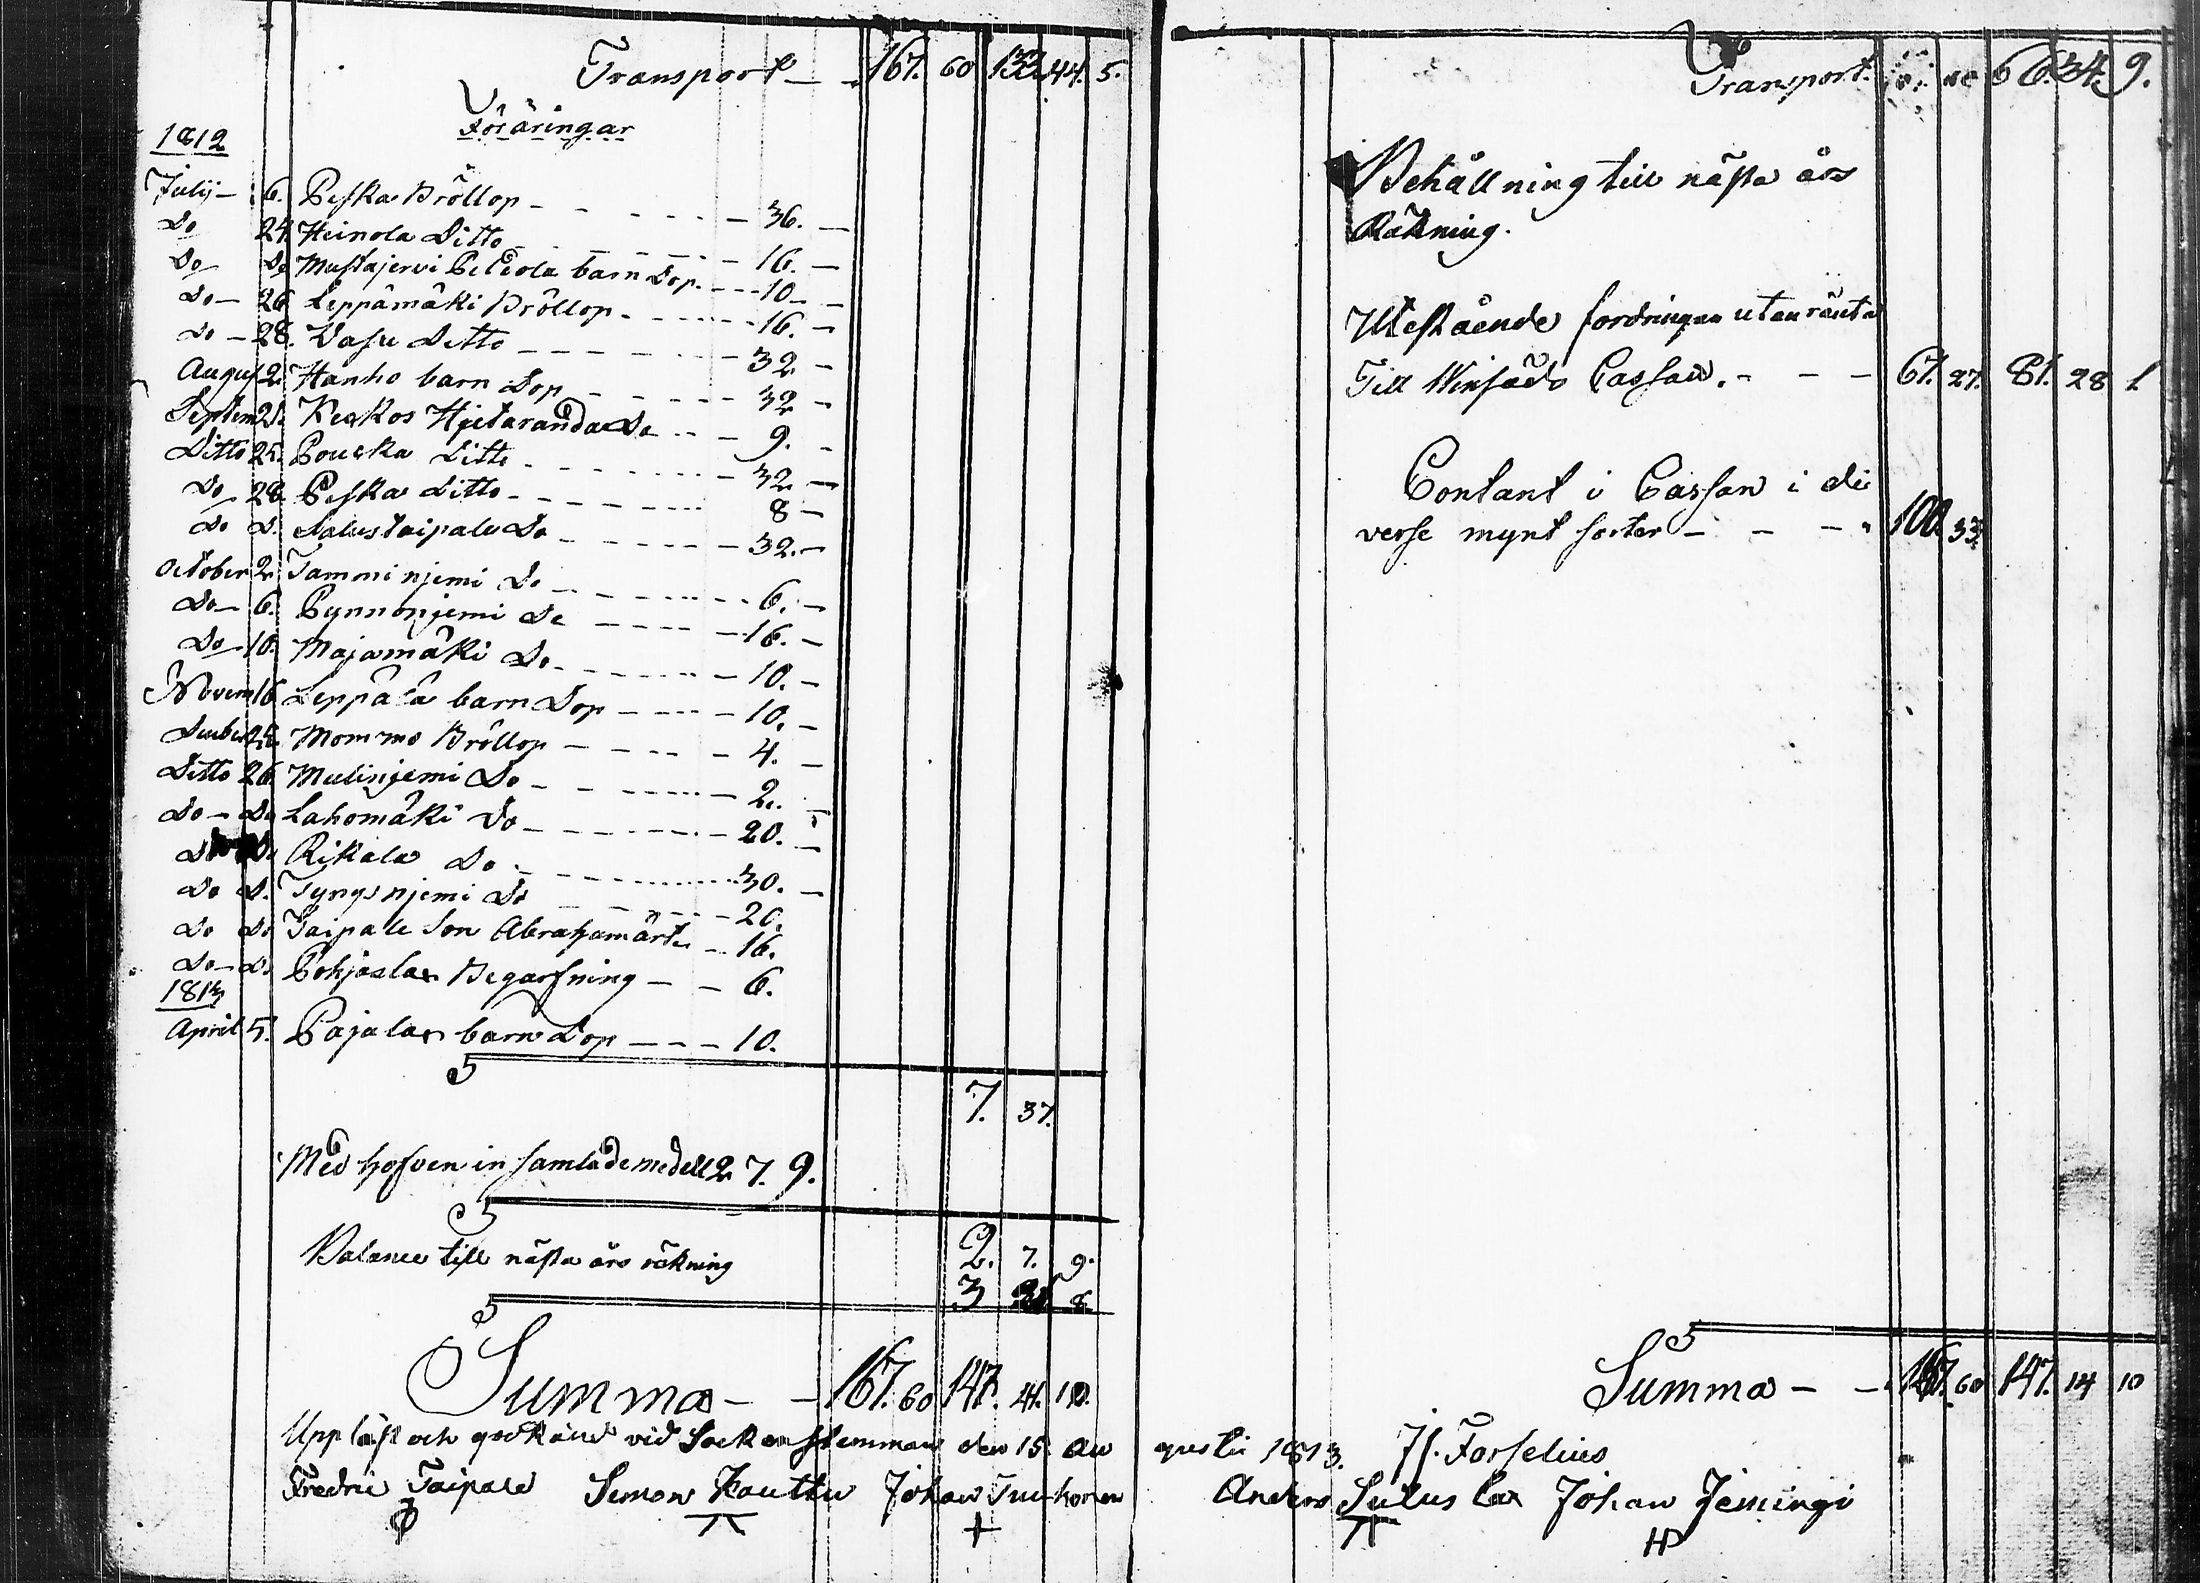 Transport — 167. 60 133 44. 5.
Föräringar
1812
Julij — 6. Peska Bröllop — 36. —
Do 24. Heinola Ditto — 16. —
Do Do Mustajervi Peltola barn Dop. — 10 —
Do — 26. Leppämäki Bröllop — 16. —
Do — 28. Vasu Ditto — 32 —
August 2. Hanho barn Dop — 32 —
Septem 21. Keskos Hjetaranda Do — 9. —
Ditto 25. Pouska Ditto — 32 —
Do 28 Peska Ditto — 8 —
Do D. Salustaipale Do — 32. —
October 2. Tamminjemi Do — 6. —
Do — 6. Pynnonjemi Do — 16. —
Do 10. Majamäki Do — 10. —
Novem 16 Leppälä barn Dop — 10. —
Dember 25. Mommo Bröllop — 4. —
Ditto 26. Mulinjemi Do — 2. —
Do — Do Lahomäki Do — 20. —
Do Do Rikala Do — 30. —
Do D. Tyngsnjemi Do — 20.
Do Do Taipale Son Abraham — 16.
Do — D. Pohjaslax Begrafning — 6.
1813
April 5. Pajalax barn Dop — 10.
7. 37.
Med hofven in samlade medell 2 7. 9.
2. 7. 9.
Balance till nästa års räkning
3 8
Summa — 167. 60 147. 14. 10.
Uppläst och godkänd vid Sockenstemman den 15 Au
Fredric Taipale Simon Kauttu Johan Turkonen
Transport. 66. 34. 9.
Behållning till nästa års
Räkning.
Utestående fordringar utan ränta
Till Cassan. — 67. 27. 81. 28 1
Contant i Cassan i di
verse mynt sorter — 100. 33.
Summa — 167. 60 147. 14 10
gusti 1813. Forselius
Anders Sutus lax Johan Jemingi
HP